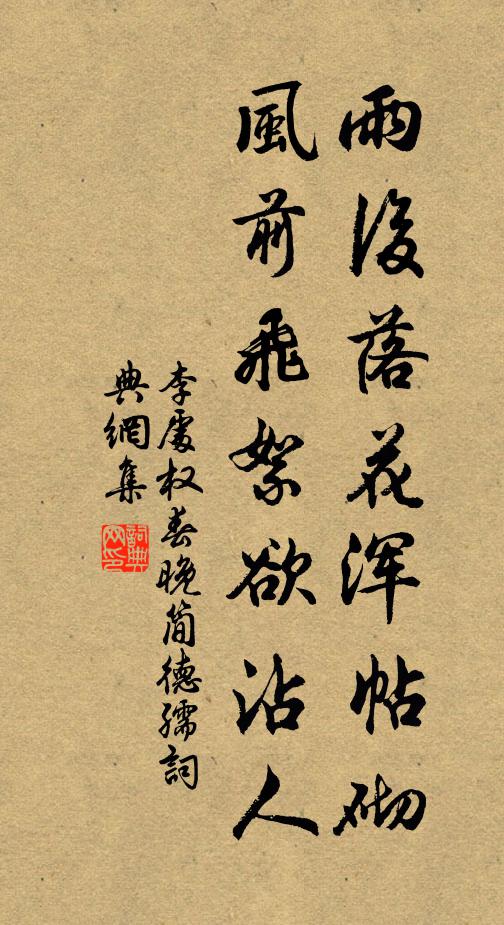 雨後落花浑帖砌
風前飛絮欲沾人
李處权春晚简德孺詞
典網集
詞典网印